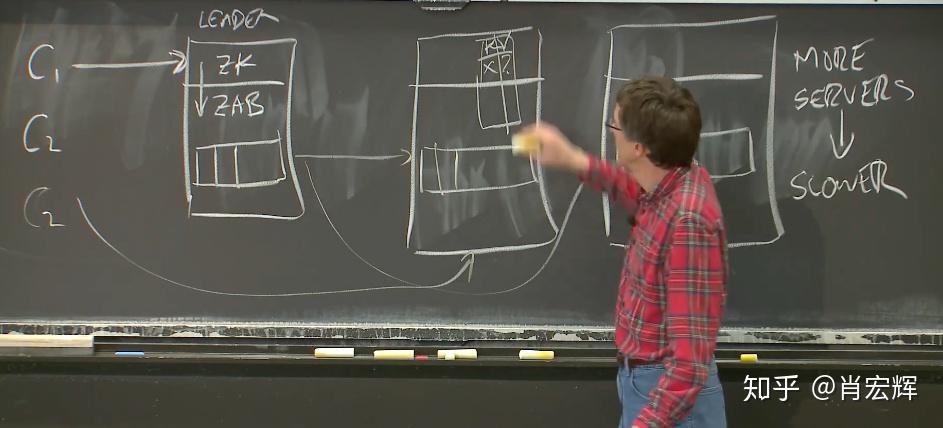 LEADER
C1
ZK
ZAB
C2
C2
KV
X2
MORE
SERVERS
SLOWER
知乎 @肖宏辉